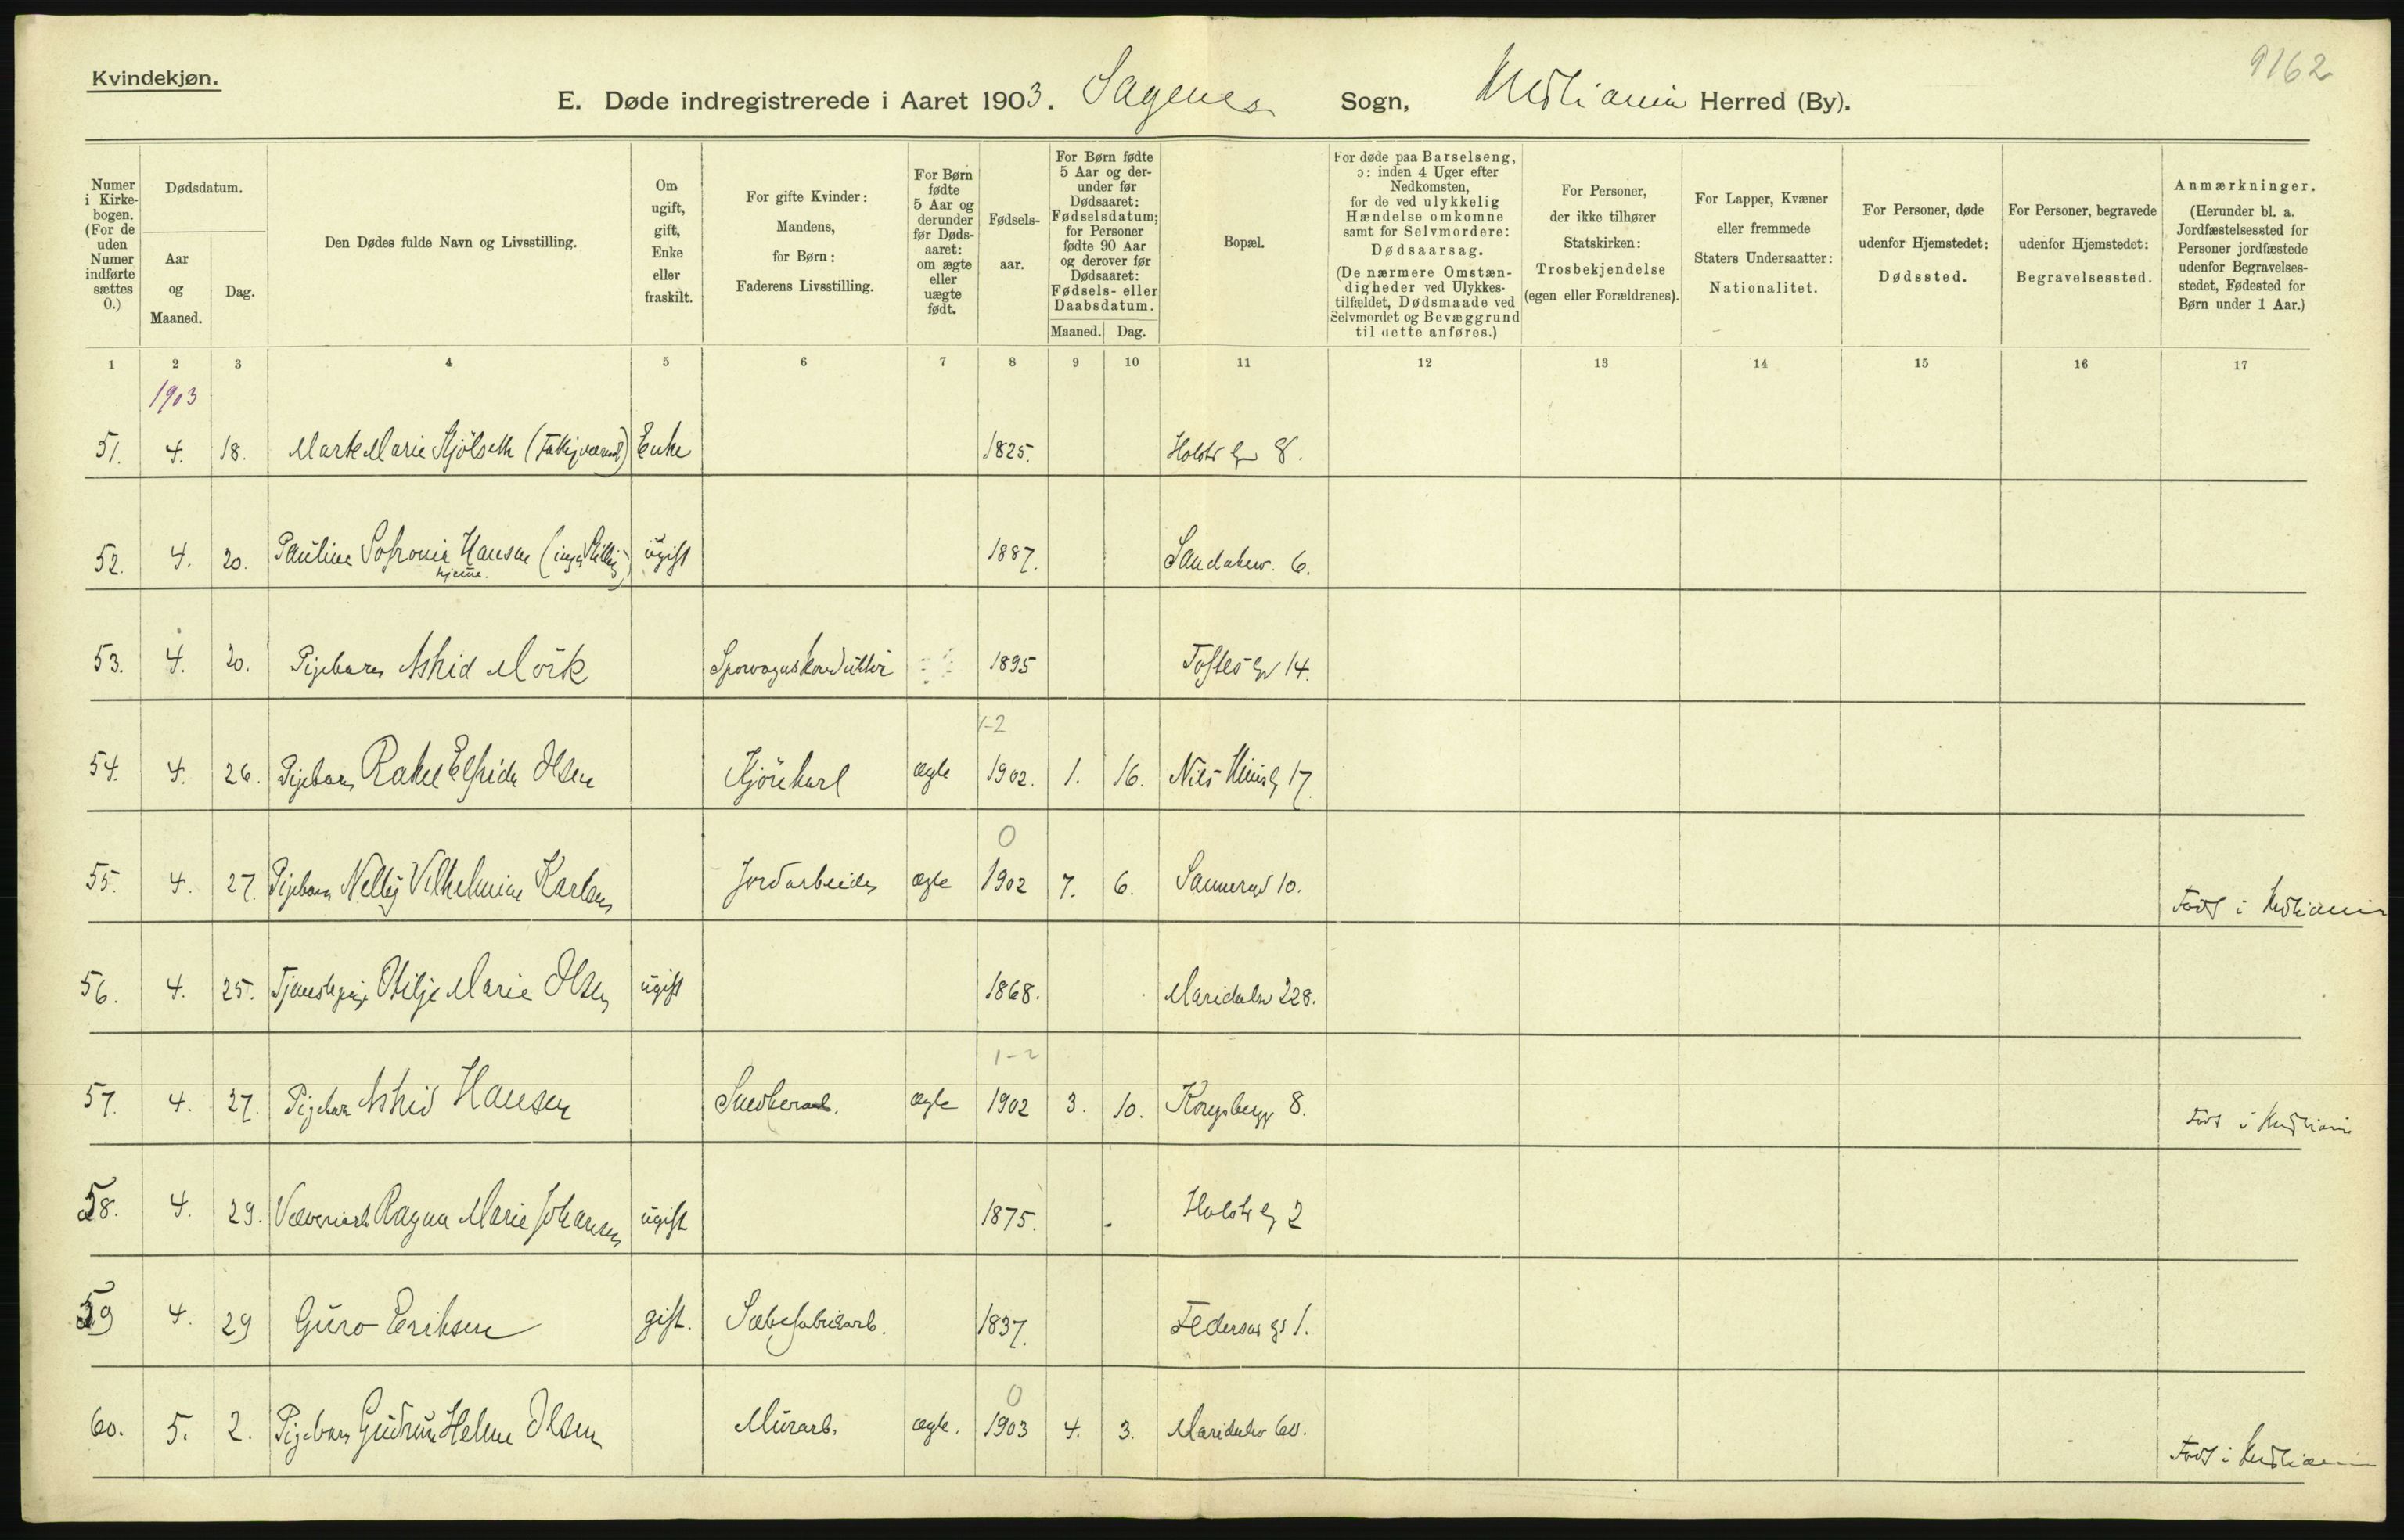 9162
Kvindekjøn.
E. Døde indregistrerede i Aaret 1903. Sagenes Sogn, Kristiania Herred (By).
Numer i Kirkebogen. (For de uden Numer indførte sættes 0.)
Dødsdatum.
Aar og Maaned.
Dag.
Den Dødes fulde Navn og Livsstilling.
Om ugift, gift, Enke eller fraskilt.
For gifte Kvinder: Mandens, for Børn: Faderens Livsstilling.
For Børn fødte 5 Aar og derunder før Dødsaaret: om ægte eller uægte født.
Fødselsaar.
For Børn fødte 5 Aar og derunder før Dødsaaret: Fødselsdatum; for Personer fødte 90 Aar og derover før Dødsaaret: Fødsels- eller Daabsdatum.
Maaned. Dag.
Bopæl.
For døde paa Barselseng, ɔ: inden 4 Uger efter Nedkomsten, for de ved ulykkelig Hændelse omkomne samt for Selvmordere: Dødsaarsag. (De nærmere Omstændigheder ved Ulykkestilfældet, Dødsmaade ved Selvmordet og Bevæggrund til dette anføres.)
For Personer, der ikke tilhører Statskirken: Trosbekjendelse (egen eller Forældrenes).
For Lapper, Kvæner eller fremmede Staters Undersaatter: Nationalitet.
For Personer, døde udenfor Hjemstedet: Dødssted.
For Personer, begravede udenfor Hjemstedet: Begravelsessted.
Anmærkninger. (Herunder bl. a. Jordfæstelsessted for Personer jordfæstede udenfor Begravelsesstedet, Fødested for Børn under 1 Aar.)
1 2 3 4 5 6 7 8 9 10 11 12 13 14 15 16 17
1903
51. 4. 18. Marte Marie Kjölseth Enke 1825. Holstsg 8.
52. 4. 20. Pauline Sofronie Hansen (ingen Stilling) ugift 1887. Sandakerv. 6.
hjemme.
53. 4. 20. Pigebarn Astrid Mörk Sporvognskonduktör 1895 Toftesg 14.
1-2
54. 4. 26. Pigebarn Rakel Elfrida Olsen Kjörekarl ægte 1902. 1. 16. Nils 17.
0
55. 4. 27. Pigebarn Nelly Vilhelmine Karlsen Jordarbeider ægte 1902 7. 6. Sannergd 10. Född i Kristiania
56. 4. 25. Tjenestepige Otilje Marie Olsen ugift 1868. Maridalsv 228.
1-2
57. 4. 27. Pigebarn Astrid Hansen ægte 1902 3. 10. Kongsbergg 8. Född i Kristiania
58. 4. 29. Væveriarb Ragna Marie Johansen ugift 1875. Holstsg 2
59 4. 29 Guro Eriksen gift. Sæbefabrikarb. 1837. 1.
0
60. 5. 2. Pigebarn Gudrun Helene Olsen Murarb. ægte. 1903 4. 3. Maridalsv 60. Född i Kristiania